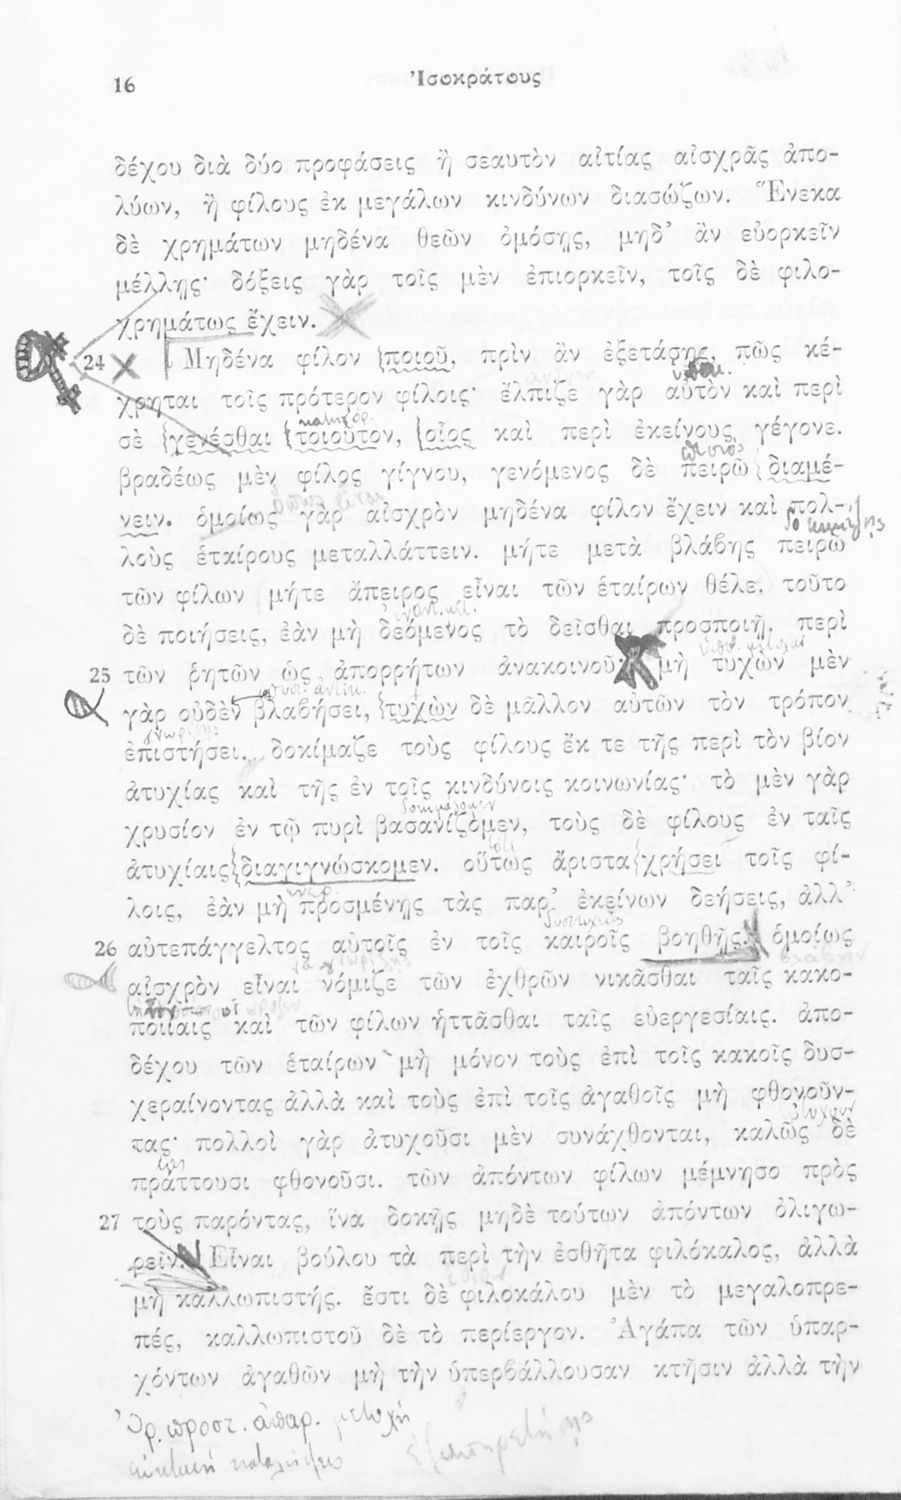 16
Ἰσοκράτους
δέχου διὰ δύο προφάσεις ἢ σεαυτὸν αἰτίας αἰσχρᾶς ἀπο-
λύων, ἢ φίλους ἐκ μεγάλων κινδύνων διασώζων. Ἕνεκα
δὲ χρημάτων μηδένα θεῶν ὀμόσῃς, μηδ’ ἂν εὐορκεῖν
μέλλῃς· δόξεις γὰρ τοῖς μὲν ἐπιορκεῖν, τοῖς δὲ φιλο-
χρημάτως ἔχειν.
24 Μηδένα φίλον ποιοῦ, πρὶν ἂν ἐξετάσῃς, πῶς κέ-
χρηται τοῖς πρότερον φίλοις· ἔλπιζε γὰρ αὐτὸν καὶ περὶ
κατηγορ.
σὲ γενέσθαι τοιοῦτον, οἷος καὶ περὶ ἐκείνους γέγονε.
βραδέως μὲν φίλος γίγνου, γενόμενος δὲ πειρῶ διαμέ-
νειν. ὁμοίως γὰρ αἰσχρὸν μηδένα φίλον ἔχειν καὶ πολ-
λοὺς ἑταίρους μεταλλάττειν. μήτε μετὰ βλάβης πειρῶ
τῶν φίλων μήτε ἄπειρος εἶναι τῶν ἑταίρων θέλε. τοῦτο
δὲ ποιήσεις, ἐὰν μὴ δεόμενος τὸ δεῖσθαι προσποιῇ, περὶ
25 τῶν ῥητῶν ὡς ἀπορρήτων ἀνακοινοῦ μὴ τυχὼν μὲν
γὰρ οὐδὲν βλαβήσει, τυχὼν δὲ μᾶλλον αὐτῶν τὸν τρόπον
ἐπιστήσει. δοκίμαζε τοὺς φίλους ἔκ τε τῆς περὶ τὸν βίον
ἀτυχίας καὶ τῆς ἐν τοῖς κινδύνοις κοινωνίας· τὸ μὲν γὰρ
δοκιμάζομεν
χρυσίον ἐν τῷ πυρὶ βασανίζομεν, τοὺς δὲ φίλους ἐν ταῖς
ἀτυχίαις διαγιγνώσκομεν. οὕτως ἄριστα χρήσει τοῖς φί-
λοις, ἐὰν μὴ προσμένῃς τὰς παρ’ ἐκείνων δεήσεις, ἀλλ’
26 αὐτεπάγγελτος αὐτοῖς ἐν τοῖς καιροῖς βοηθῇς. ὁμοίως
αἰσχρὸν εἶναι νόμιζε τῶν ἐχθρῶν νικᾶσθαι ταῖς κακο-
ποιίαις καὶ τῶν φίλων ἡττᾶσθαι ταῖς εὐεργεσίαις. ἀπο-
δέχου τῶν ἑταίρων μὴ μόνον τοὺς ἐπὶ τοῖς κακοῖς δυσ-
χεραίνοντας ἀλλὰ καὶ τοὺς ἐπὶ τοῖς ἀγαθοῖς μὴ φθονοῦν-
τας· πολλοὶ γὰρ ἀτυχοῦσι μὲν συνάχθονται, καλῶς δὲ
πράττουσι φθονοῦσι. τῶν ἀπόντων φίλων μέμνησο πρὸς
27 τοὺς παρόντας, ἵνα δοκῇς μηδὲ τούτων ἀπόντων ὀλιγω-
ρεῖν. Εἶναι βούλου τὰ περὶ τὴν ἐσθῆτα φιλόκαλος, ἀλλὰ
μὴ καλλωπιστής. ἔστι δὲ φιλοκάλου μὲν τὸ μεγαλοπρε-
πές, καλλωπιστοῦ δὲ τὸ περίεργον. Ἀγάπα τῶν ὑπαρ-
χόντων ἀγαθῶν μὴ τὴν ὑπερβάλλουσαν κτῆσιν ἀλλὰ τὴν
προστ. ἀπαρ. μετοχή